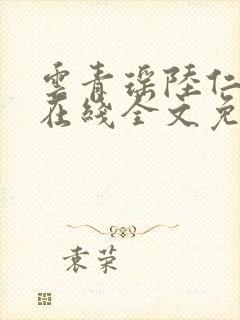 雲青瑶陸仁
在綫全文免
袁荣